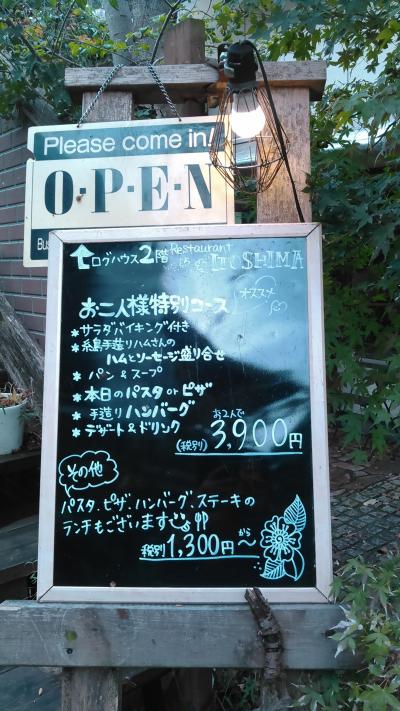 Please come in!
O-P-E-N
Bus
ログハウス2階 Restaurant ITOSHIMA
オススメ
お二人様特別コース
*サラダバイキング付き
*糸島手造りハムさんの
ハムとソーセージ盛り合せ
*パン&スープ
*本日のパスタorピザ
*手造りハンバーグ
*デザート&ドリンク
お二人で
(税別)3,900円
その他
パスタ、ピザ、ハンバーグ、ステーキの
ランチもございます
税別1,300円から〜